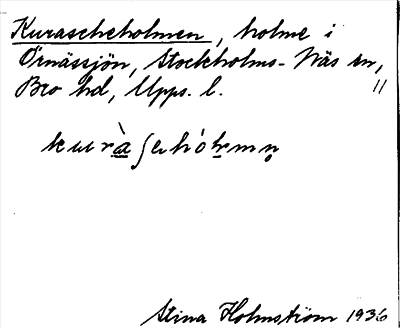 Kurascheholmen, holme i
Örnässjön, Stockholms-Näs sn,
Bro hd, Upps. l. 11
kuràʃɐhólmn̥
Stina Holmström 1936